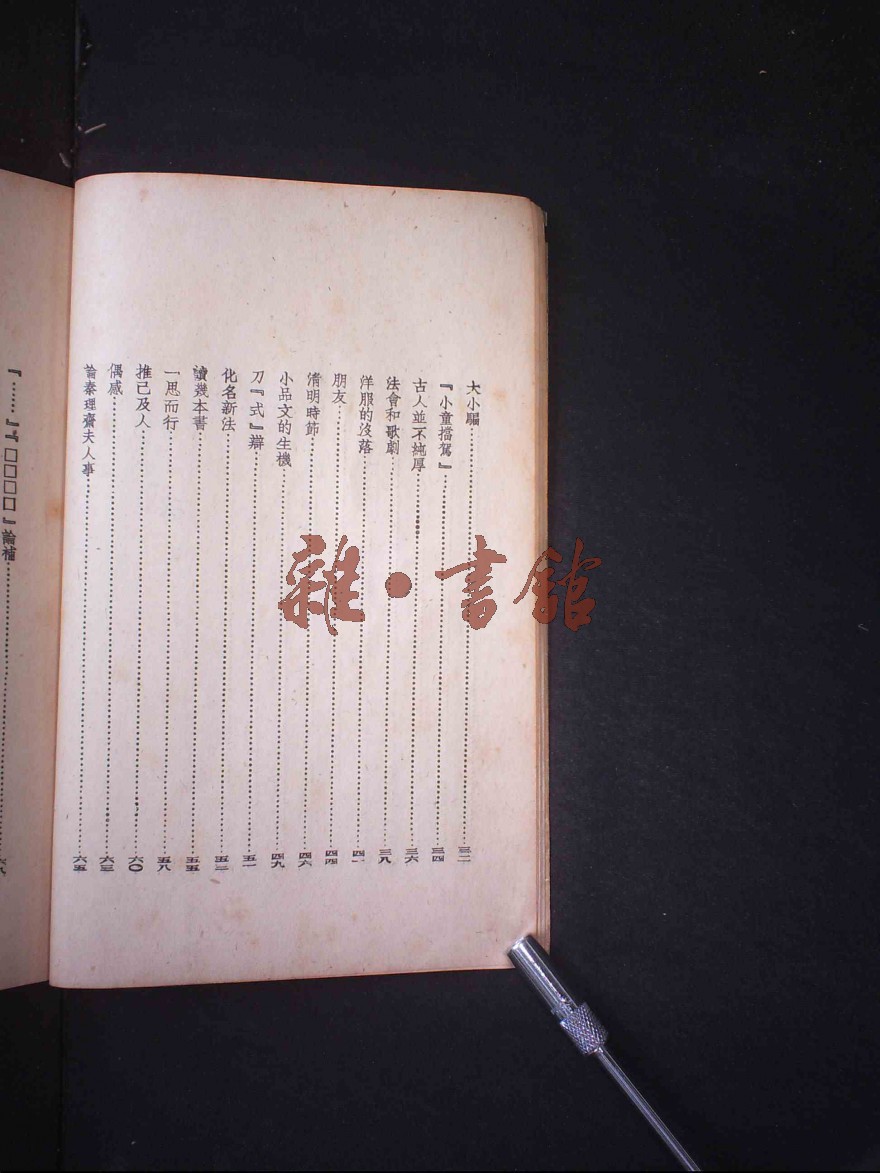 大小騙……三二
『小童擋駕』……三四
古人並不純厚……三六
法會和歌劇……三八
洋服的沒落……四一
朋友……四四
清明時節……四六
小品文的生機……四九
刀『式』辯……五一
化名新法……五三
讀幾本書……五五
一思而行……五八
推己及人……六〇
偶感……六三
論秦理齋夫人事……六五
『……』『□□□□』論補……
雜·書館